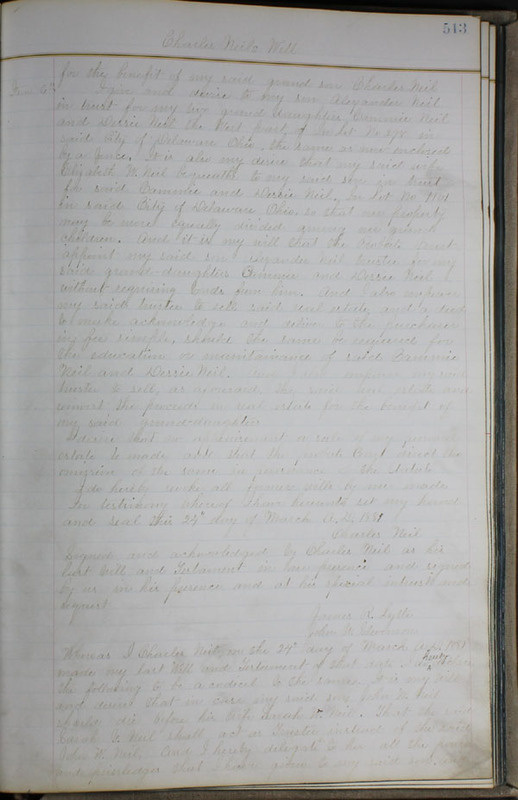 513
Charles Neil's Will
for the benefit of my said grand son Charles Neil
Item 6th I give and devise to my son Alexander Neil
in trust for my two grand daughters Cammie Neil
and Dessie Neil the West part of In Lot No 278 in
said City of Delaware Ohio, the same as now enclosed
by a fence. It is also my desire that my said wife
Elizabeth W. Neil bequeath to my said son in trust
for said Cammie and Dessie Neil, In Lot No
in said City of Delaware Ohio, so that my property
may be more equally divided among my grand
children. And it is my will that the Probate Court
appoint my said son Alexander Neil trustee for my
said grand-daughters Cammie and Dessie Neil
without requiring bonds from him. And I also empower
my said trustee to sell said real estate, and a deed
to make acknowledge and deliver to the purchaser
in fee simple, should the same be required for
the education or maintainance of said Cammie
Neil and Dessie Neil. I also empower my said
trustee to sell, as aforesaid the said real estate and
convert the proceeds in real estate for the benefit of
my said grand-daughters
I desire that no appraisement or sale of my personal
estate be made and that the Probate Court direct the
omission of the same in pursuance of the Statute
I do hereby revoke all former wills by me made
In testimony whereof I have hereunto set my hand
and seal this 24" day of March A.D. 1881
Charles Neil
Signed and acknowledged by Charles Neil as his
last Will and Testament in our presence and signed
by us in his presence and at his special interest and
request
James R. Lytle
John W.
Whereas I Charles Neil, on the 24" day of March A.D. 1881
made my last Will and Testament of that date I do hereby
the following to be a codicil to the same. It is my will
and desire that in case my said son John W. Neil
shall die before his wife Sarah K. Neil. That the said
Sarah K. Neil shall act as Trustee instead of the said
John W. Neil. And I hereby delegate to her all the power
and privileges that I have given to my said son